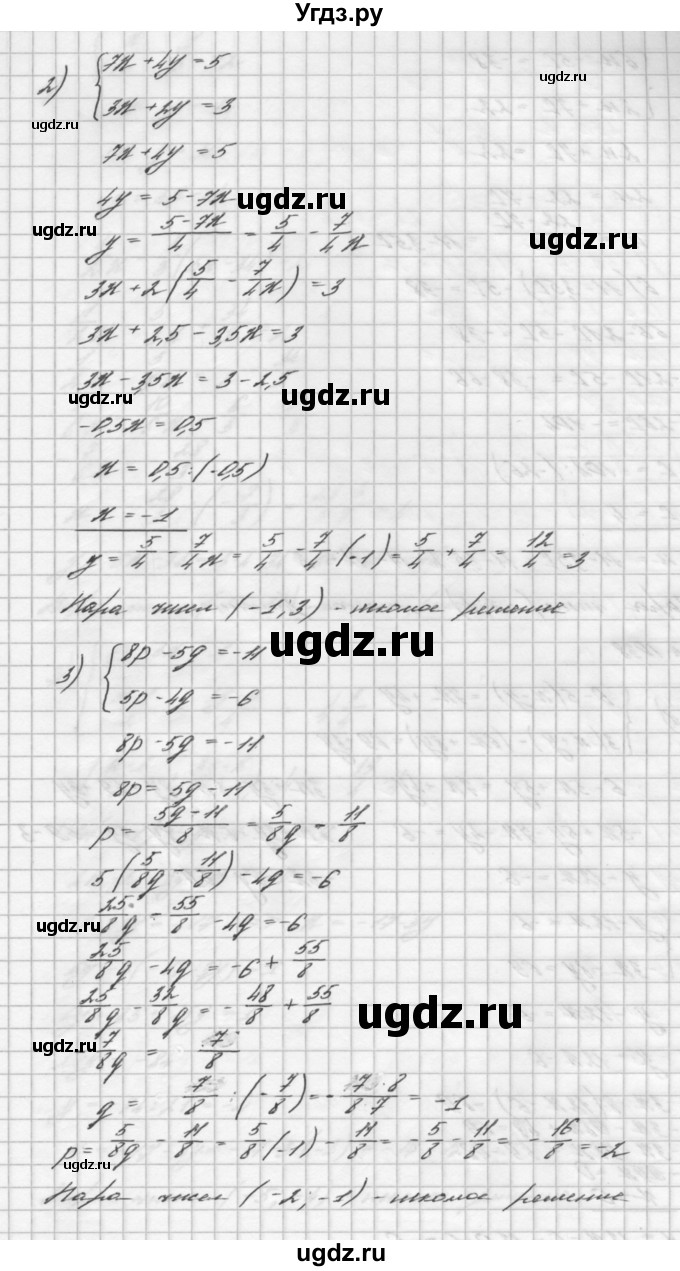 Угдз.ру
2) { 7x + 4y = 5
ugdz.ru
3x + 2y = 3
ugdz.ru
7x + 4y = 5
4y = 5 - 7x ugdz.ru
ugdz.ru y = (5 - 7x)/4 = 5/4 - 7/4x ugdz.ru
3x + 2(5/4 - 7/4x) = 3
3x + 2,5 - 3,5x = 3
3x - 3,5x = 3 - 2,5
ugdz.ru ugdz.ru
-0,5x = 0,5
x = 0,5 : (-0,5)
x = -1
y = 5/4 - 7/4x = 5/4 - 7/4(-1) = 5/4 + 7/4 = 12/4 = 3
Пара чисел (-1; 3) - искомое решение
ugdz.ru
3) { 8p - 5q = -11
ugdz.ru
5p - 4q = -6
8p - 5q = -11
ugdz.ru
8p = 5q - 11
p = (5q - 11)/8 = 5/8q - 11/8
5(5/8q - 11/8) - 4q = -6
25/8q - 55/8 - 4q = -6
ugdz.ru
25/8q - 4q = -6 + 55/8
25/8q - 32/8q = -48/8 + 55/8
ugdz.ru
ugdz.ru -7/8q = 7/8
q = 7/8 : (-7/8) = -7·8/8·7 = -1
p = 5/8q - 11/8 = 5/8(-1) - 11/8 = -5/8 - 11/8 = -16/8 = -2
ugdz.ru
Пара чисел (-2; -1) - искомое решение
ugdz.ru